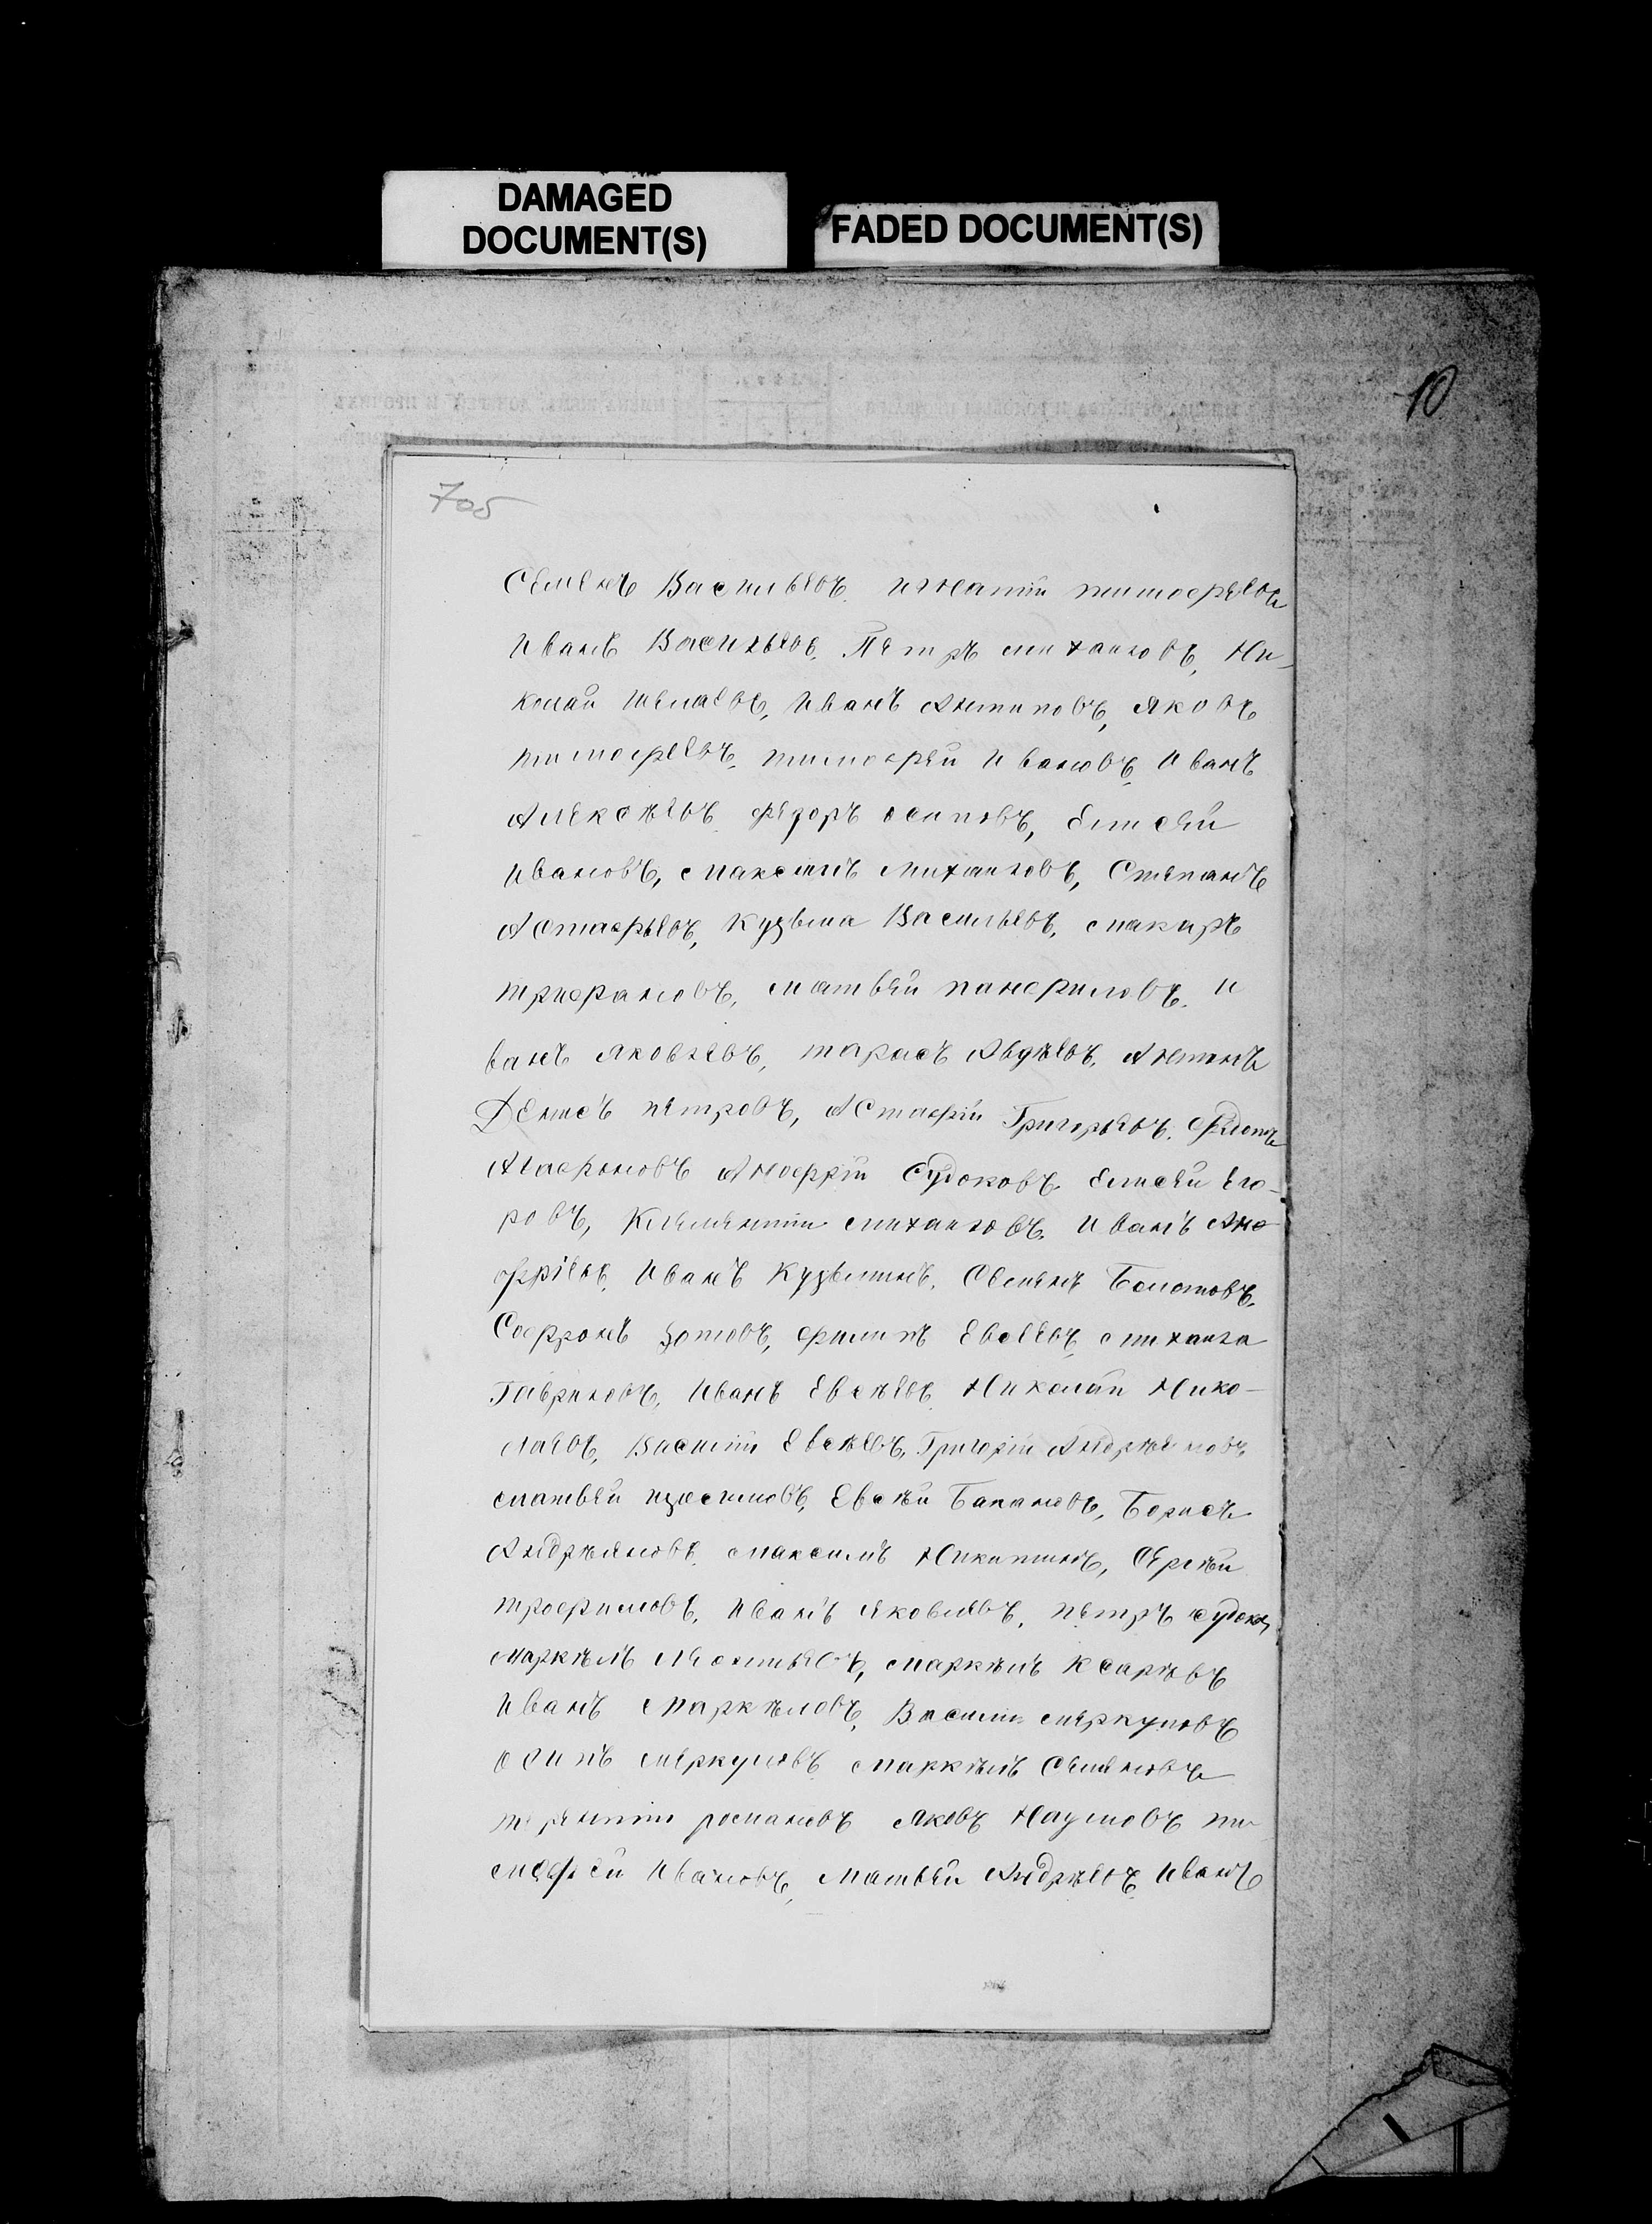 DAMAGED
DOCUMENT(S)
FADED DOCUMENT(S)
10
7об
Семенъ Васильевъ. игнатiй тимофѣевъ
Иванъ Васильевъ. Петръ михаиловъ, Ни-
колай Шемаевъ, Иванъ Антиповъ, Яковъ
тимофеевъ, тимофѣй Ивановъ, Иванъ
Алексѣевъ федоръ осиповъ, Елисѣй
Ивановъ, максимъ михаиловъ, Степанъ
Астафьевъ, Кузьма Васильевъ, макаръ
трифановъ, матвѣй панфиловъ. И
ванъ Яковлевъ, тарасъ Авдѣевъ, Антонъ
Денисъ петровъ, Астафiй Григорьевъ. Федотъ
Агафоновъ Аноффрiй Судоковъ Елисѣй Его-
ровъ, Клементiй михаиловъ. Иванъ Ано
ффрiевъ, Иванъ Кузьминъ, Семенъ Болотовъ,
Соффронъ Зотовъ, филипъ Евсеевъ, михаила
Гавриловъ, Иванъ Евсѣевъ Николай Нико-
лаевъ, Василiй Евсѣевъ, Григорiй Андреяновъ
матвѣй Изосимовъ, Евсѣй Бапановъ, Борисъ
Андреяновъ максимъ Никитинъ, Сергѣй
трофимовъ, Иванъ Яковлевъ, петръ судоко
Маркѣлъ Леонтьевъ, маркѣлъ Ксаревъ
Иванъ Маркѣловъ, Василiй меркуловъ
осипъ меркуловъ маркѣлъ Семеновъ
терентiй романовъ Яковъ Наумовъ ти
мофѣй Ивановъ, Матвѣй Андрѣевъ Иванъ